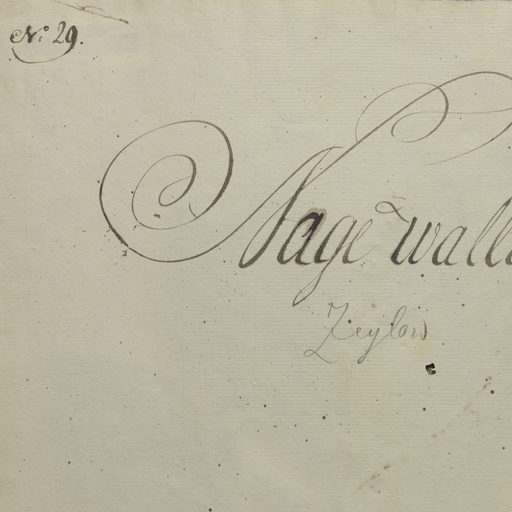 No. 29.
Nage walla
Zeylon